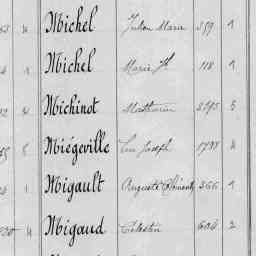 4 Michel Julien Marie 359 1
1 Michel Marie Jh 118 1
4 Michinot Mathurin 5
5 Miégeville Joseph 1798 4
1 Migault Auguste 366 1
4 Migaud Célestin 604 2